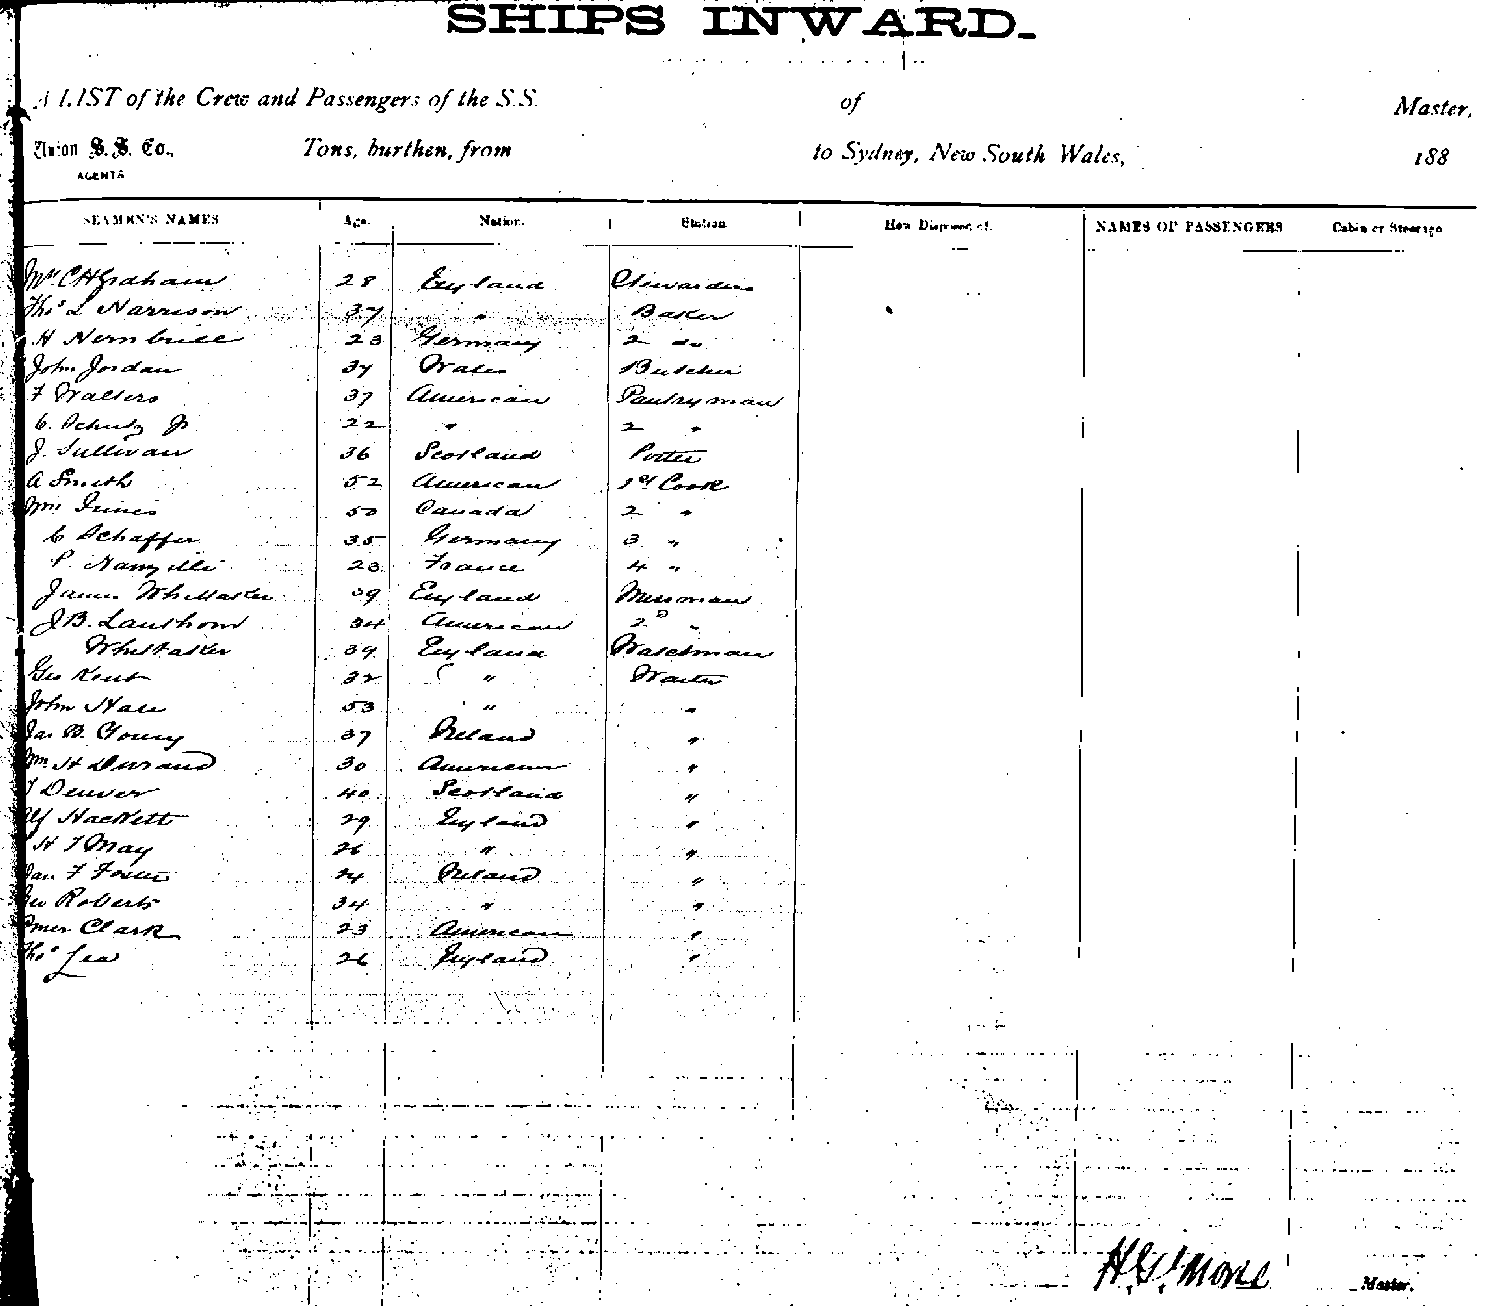 SHIPS INWARD.
A LIST of the Crew and Passengers of the S.S. of Master,
Union S. S. Co., Tons, burthen, from to Sydney, New South Wales, 188
AGENTS
SEAMEN'S NAMES Age. Nation. Station How Disposed of. NAMES OF PASSENGERS Cabin or Steerage
C H Graham 28 England Stewardess
Thos L Harrison 37 " Baker
H 23 Germany 2 do
John Jordan 37 Wales Butcher
F Walters 37 American Pantryman
C. Schutz Jr 22 " 2 "
J. Sullivan 36 Scotland Porter
A Smith 52 American 1st Cook
Wm 50 Canada 2 "
C Schaffer 35 Germany 3 "
P. 23 France 4 "
James Whittaker 39 England Messman
J B. 34 American 2 "
Whittaker 39 England Watchman
Geo Kent 32 " Waiter
John Hall 53 " "
Jas B. 37 Ireland "
Wm H Durand 30 American "
J Denver 40 Scotland "
Alf Hackett 29 England "
H T May 26 " "
Jas F Foster 24 Ireland "
Geo Roberts 34 " "
Clark 23 American "
Thos Lea 26 England "
H. G. Morse Master.